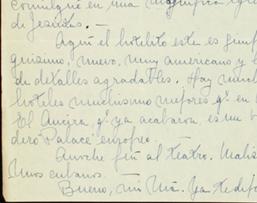 comulgué en una magnífica igl
de Jesuitas. —
Aquí el hotelito este es simp
quísimo, nuevo, muy americano y l
de detalles agradables. Hay much
hoteles muchísimo mejores q. en
El Ancira, q. ya acabaron, es un v
dero "Palace" europeo.
Anoche fuí al teatro. Malis
unos cubanos.
Bueno, mi Má. Ya te dije